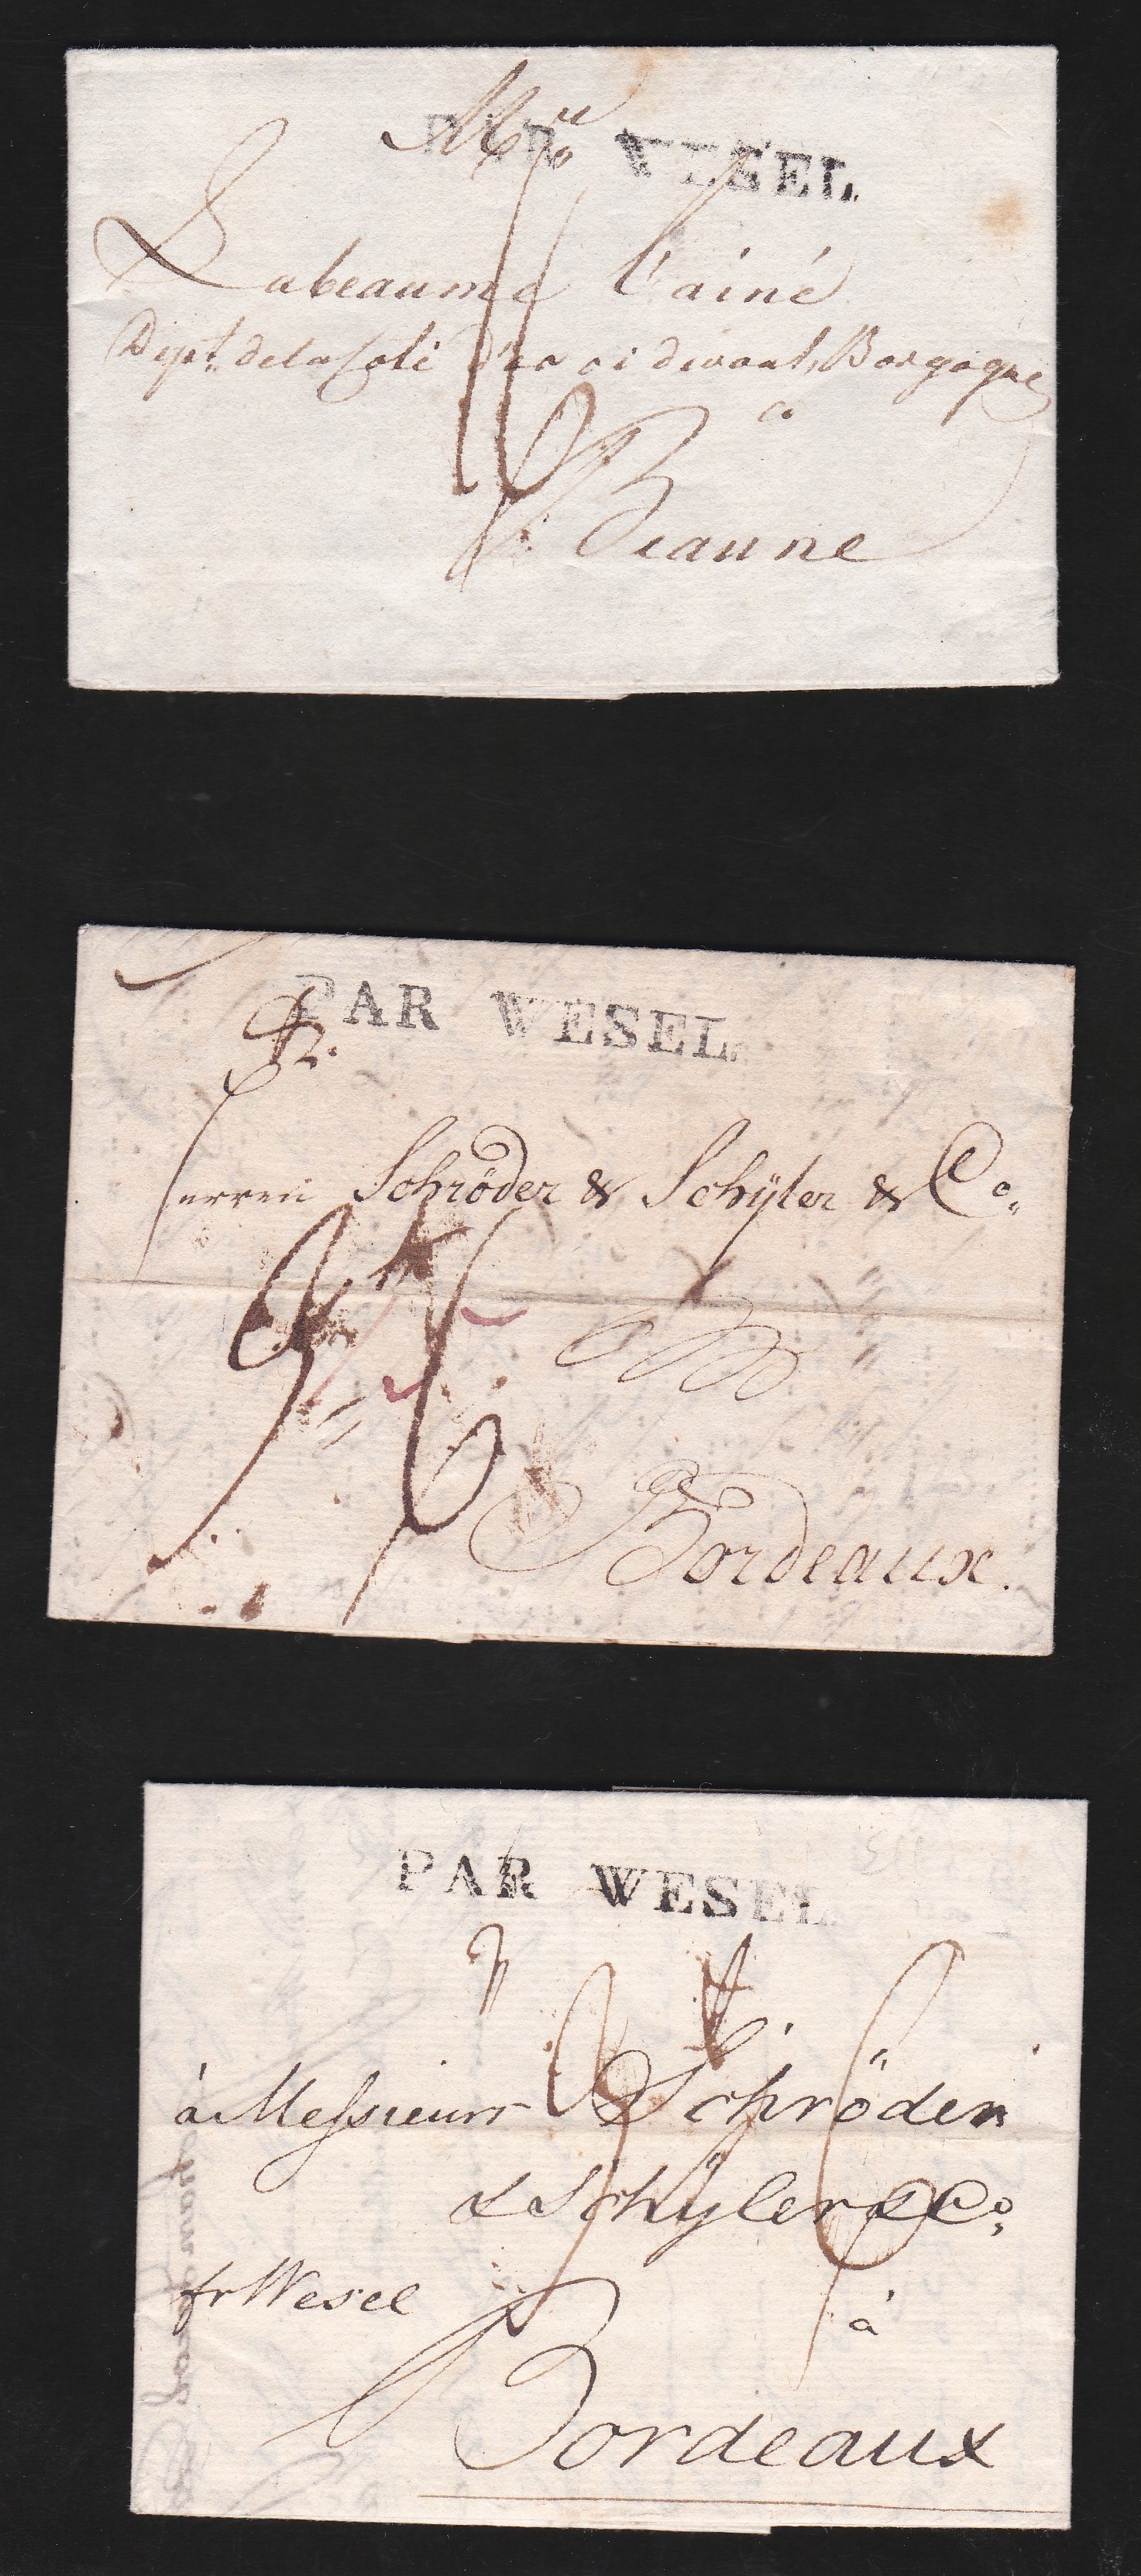 PAR WESEL
Labeaume l'ainé
Dept. de la Coté d'or ci devant Borgogne
a
Beaune
PAR WESEL
Herren Schröder & Schÿler & Co.
Bordeaux.
PAR WESEL
à Messieurs Schröder
& Schÿler & Co.
fr Wesel
à
Bordeaux